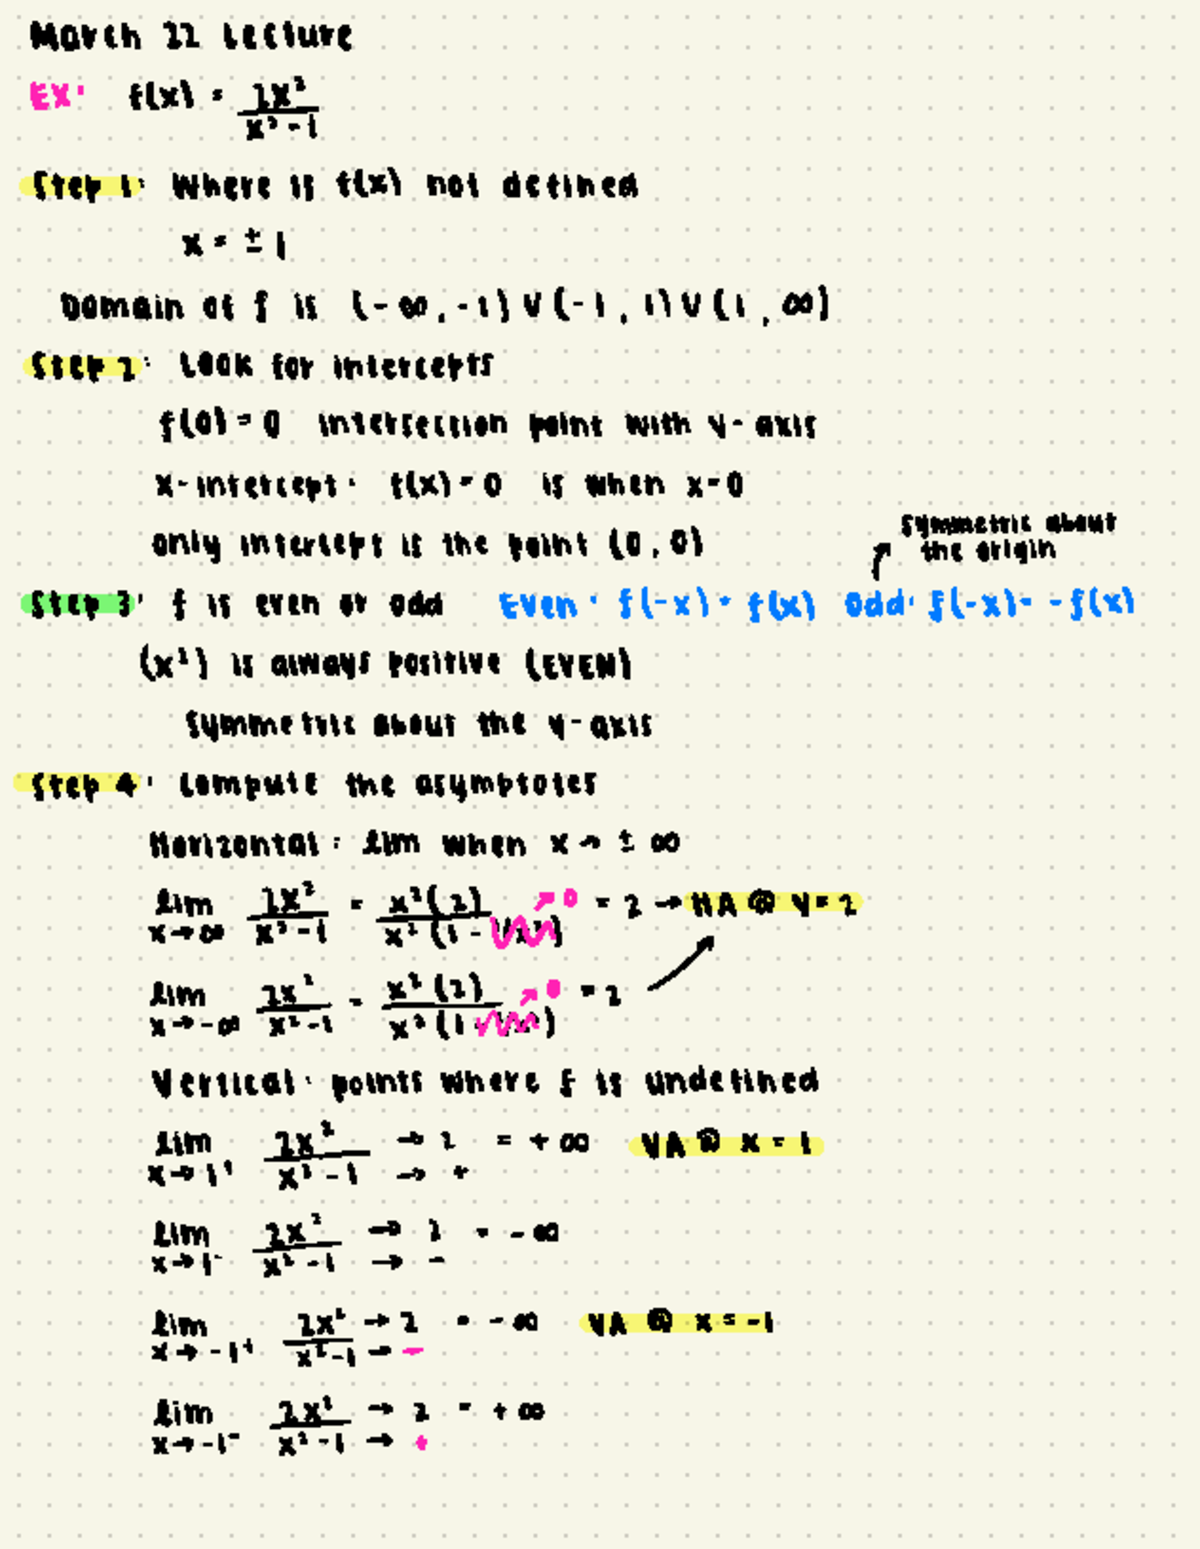 March 22 Lecture
EX: f(x) = 2x² / x² - 1
Step 1: Where is f(x) not defined
x = ± 1
Domain of f is (-∞, -1) ∪ (-1, 1) ∪ (1, ∞)
Step 2: Look for intercepts
f(0) = 0 intersection point with y-axis
x-intercept: f(x) = 0 is when x = 0
only intercept is the point (0, 0)
symmetric about
the origin
Step 3: f is even or odd Even: f(-x) = f(x) Odd: f(-x) = -f(x)
(x²) is always positive (EVEN)
symmetric about the y-axis
Step 4: Compute the asymptotes
Horizontal: lim when x → ± ∞
lim x→∞ 2x² / x² - 1 = x²(2) / x²(1 - 1/x²) → 0 = 2 → HA @ y = 2
lim x→-∞ 2x² / x² - 1 = x²(2) / x²(1 - 1/x²) → 0 = 2
Vertical: points where f is undefined
lim x→1⁺ 2x² / x² - 1 → 2 → + = + ∞ VA @ x = 1
lim x→1⁻ 2x² / x² - 1 → 2 → - = - ∞
lim x→-1⁺ 2x² / x² - 1 → 2 → - = - ∞ VA @ x = -1
lim x→-1⁻ 2x² / x² - 1 → 2 → + = + ∞